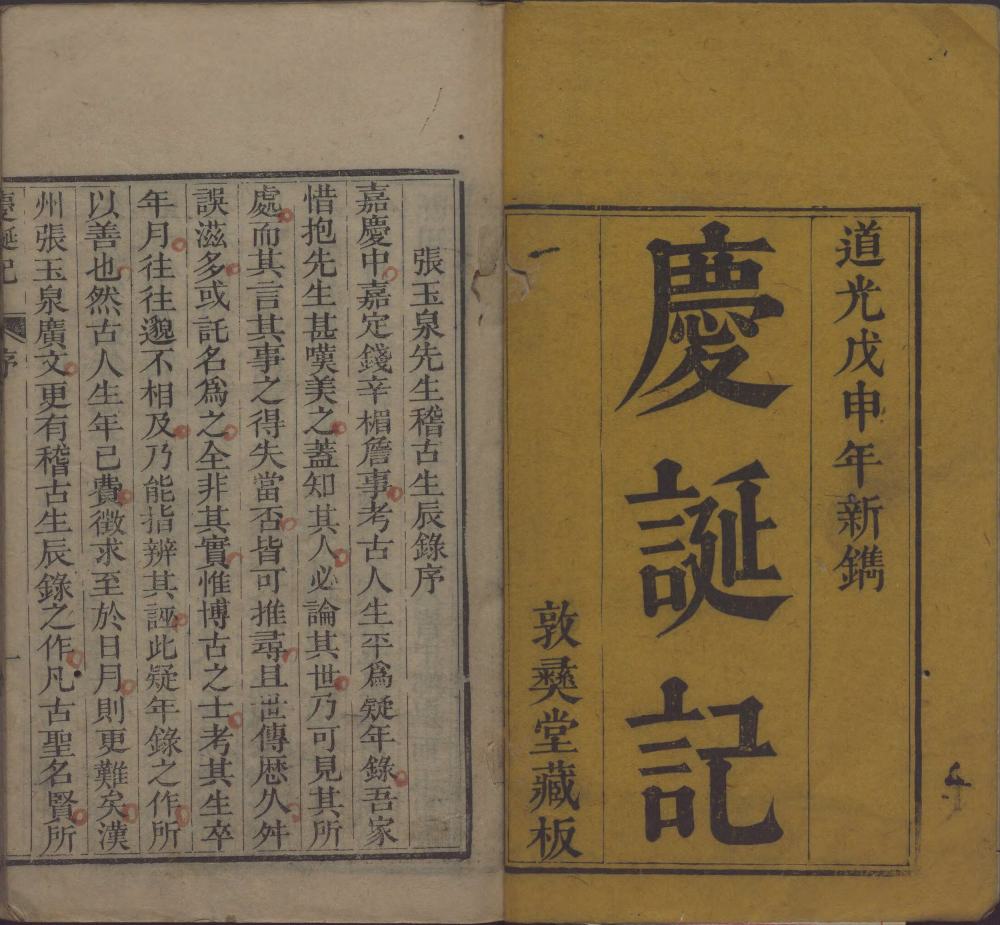 道光戊申年新鐫
慶誕記
敦彜堂藏板
張玉泉先生稽古生辰錄序
嘉慶中嘉定錢辛楣詹事考古人生平爲疑年錄吾家
惜抱先生甚嘆美之蓋知其人必論其世乃可見其所
處而其言其事之得失當否皆可推尋且世傳歴久舛
誤滋多或託名爲之全非其實惟博古之士考其生卒
年月往往邈不相及乃能指辨其誣此疑年錄之作所
以善也然古人生年已費徵求至於日月則更難矣漢
州張玉泉廣文更有稽古生辰錄之作凡古聖名賢所
慶誕記 序 一